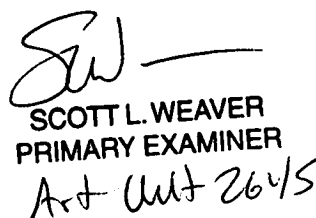 SCOTT L. WEAVER
PRIMARY EXAMINER
Art Unit 2645